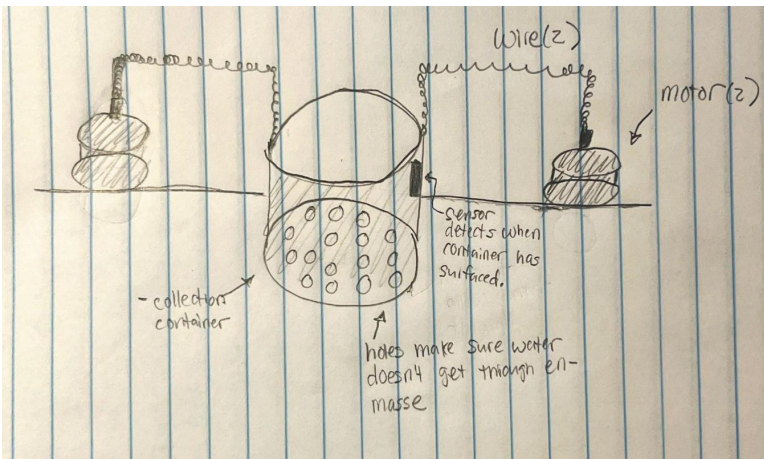 wire(2)
motor(2)
sensor
detects when
container has
surfaced.
- collection
container
holes make sure water
doesn't get through en-
masse